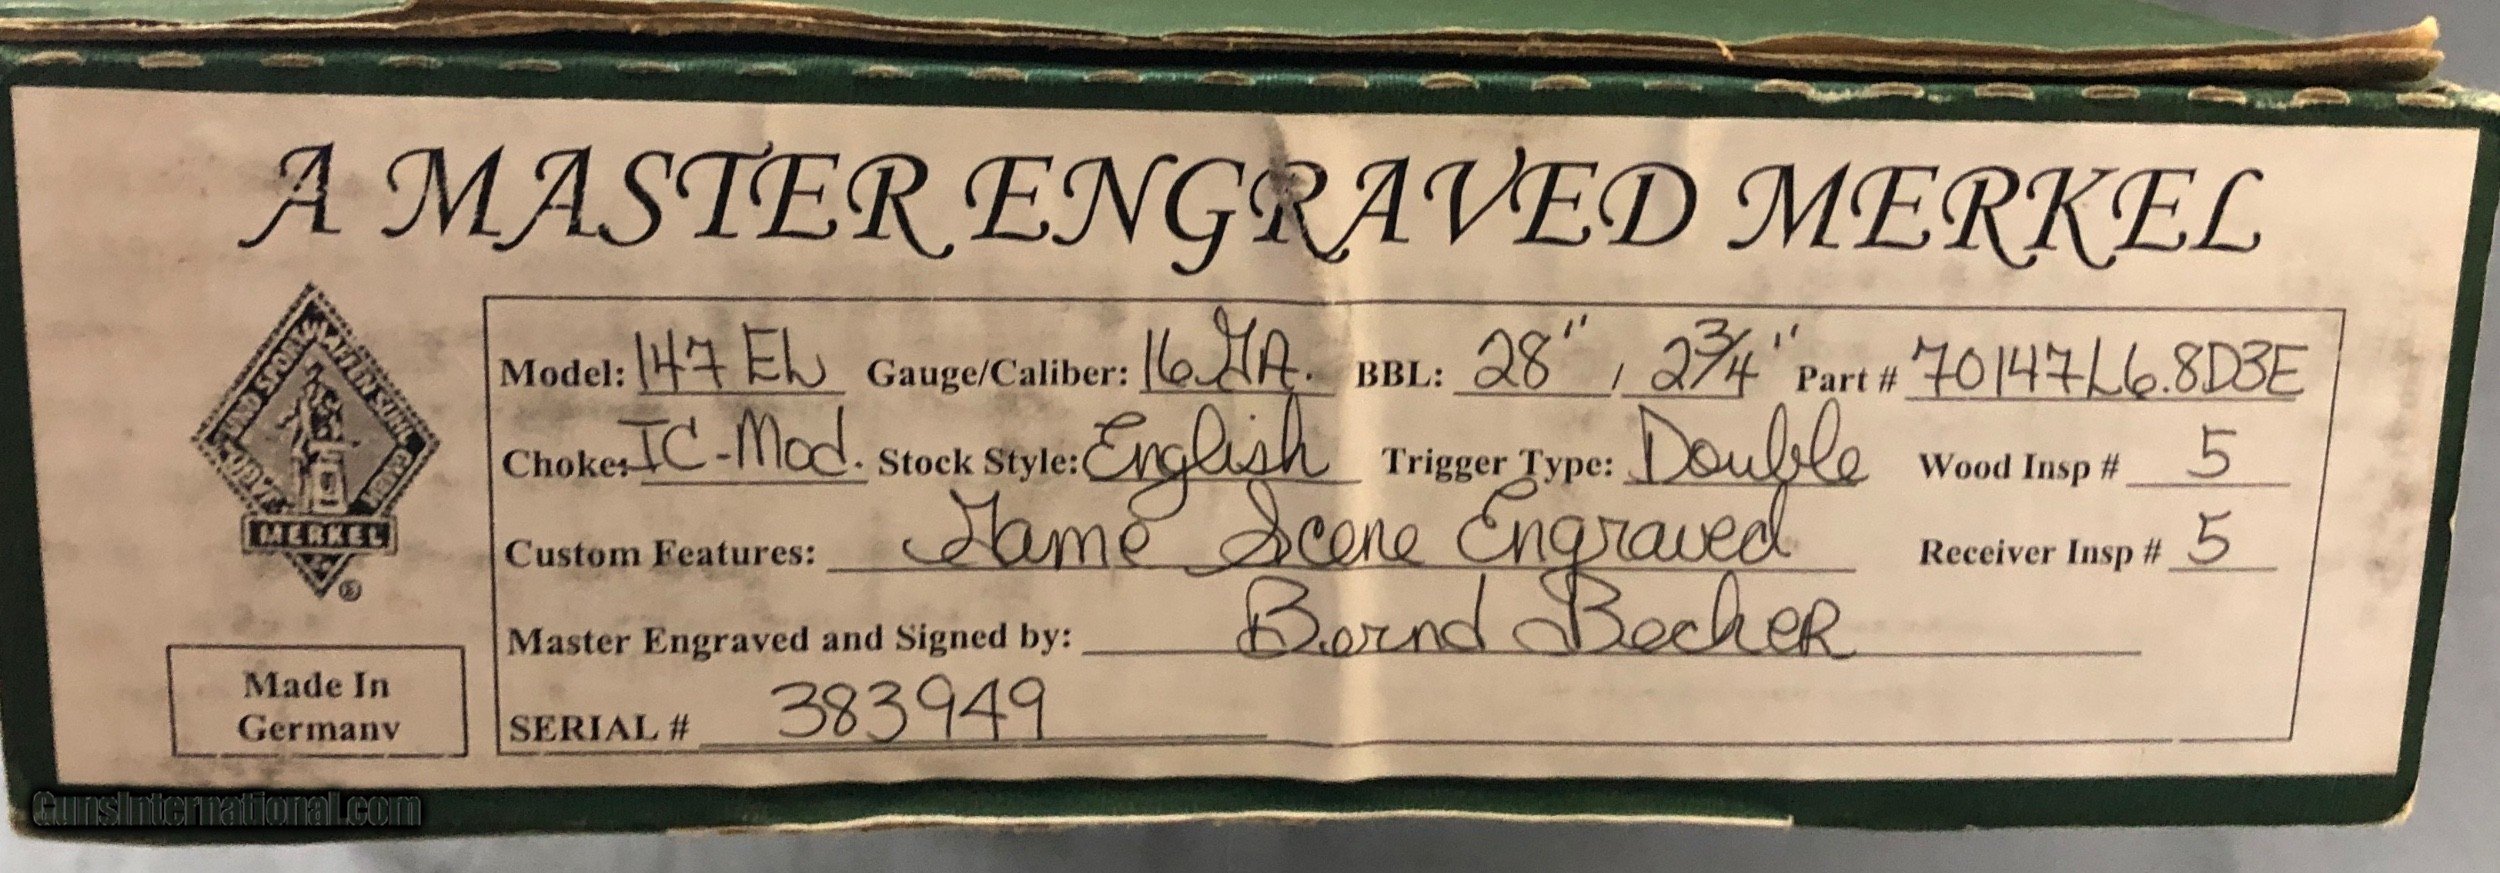 A MASTER ENGRAVED MERKEL
Model: 147 EL Gauge/Caliber: 16 GA. BBL: 28", 2 3/4" Part # 70147L6.8D3E
Choke: IC-Mod. Stock Style: English Trigger Type: Double Wood Insp # 5
Custom Features: Game Scene Engraved Receiver Insp # 5
Master Engraved and Signed by: Bernd Becker
SERIAL # 383949
MERKEL
®
Made In
Germany
GunsInternational.com